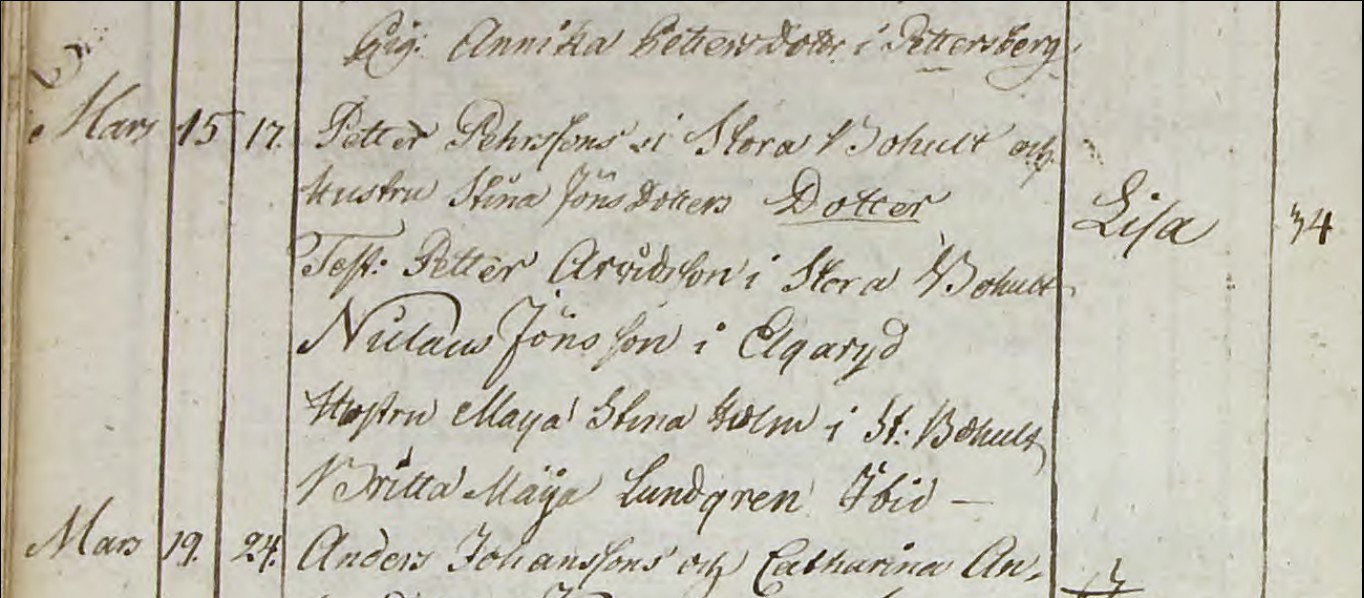 Pig: Annika Petters Dotter i Pettersberg
Mars 15 17. Petter Pehrssons i Stora Bohult och
Hustru Stina Jöns Dotters Dotter Lisa 34
Test: Petter Arvidsson i Stora Bohult
Niclaus Jönsson i Elgaryd
Hustru Maya Stina Holm i St: Bohult
Britta Maija Lundgren Ibid —
Mars 19. 24. Anders Johanssons och Catharina An-